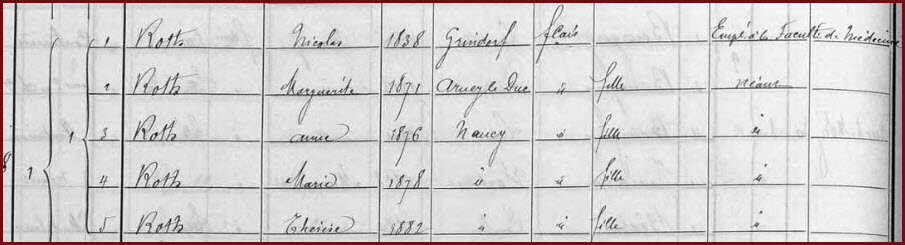 1 Roth Nicolas 1838 Grindorf fçais Empé à la Faculté de Médecine
2 Roth Marguerite 1871 Arney le Duc " fille néant
3 Roth Anne 1876 Nancy " fille "
8 1 1 4 Roth Marie 1878 " " fille "
5 Roth Thérèse 1882 " " fille "